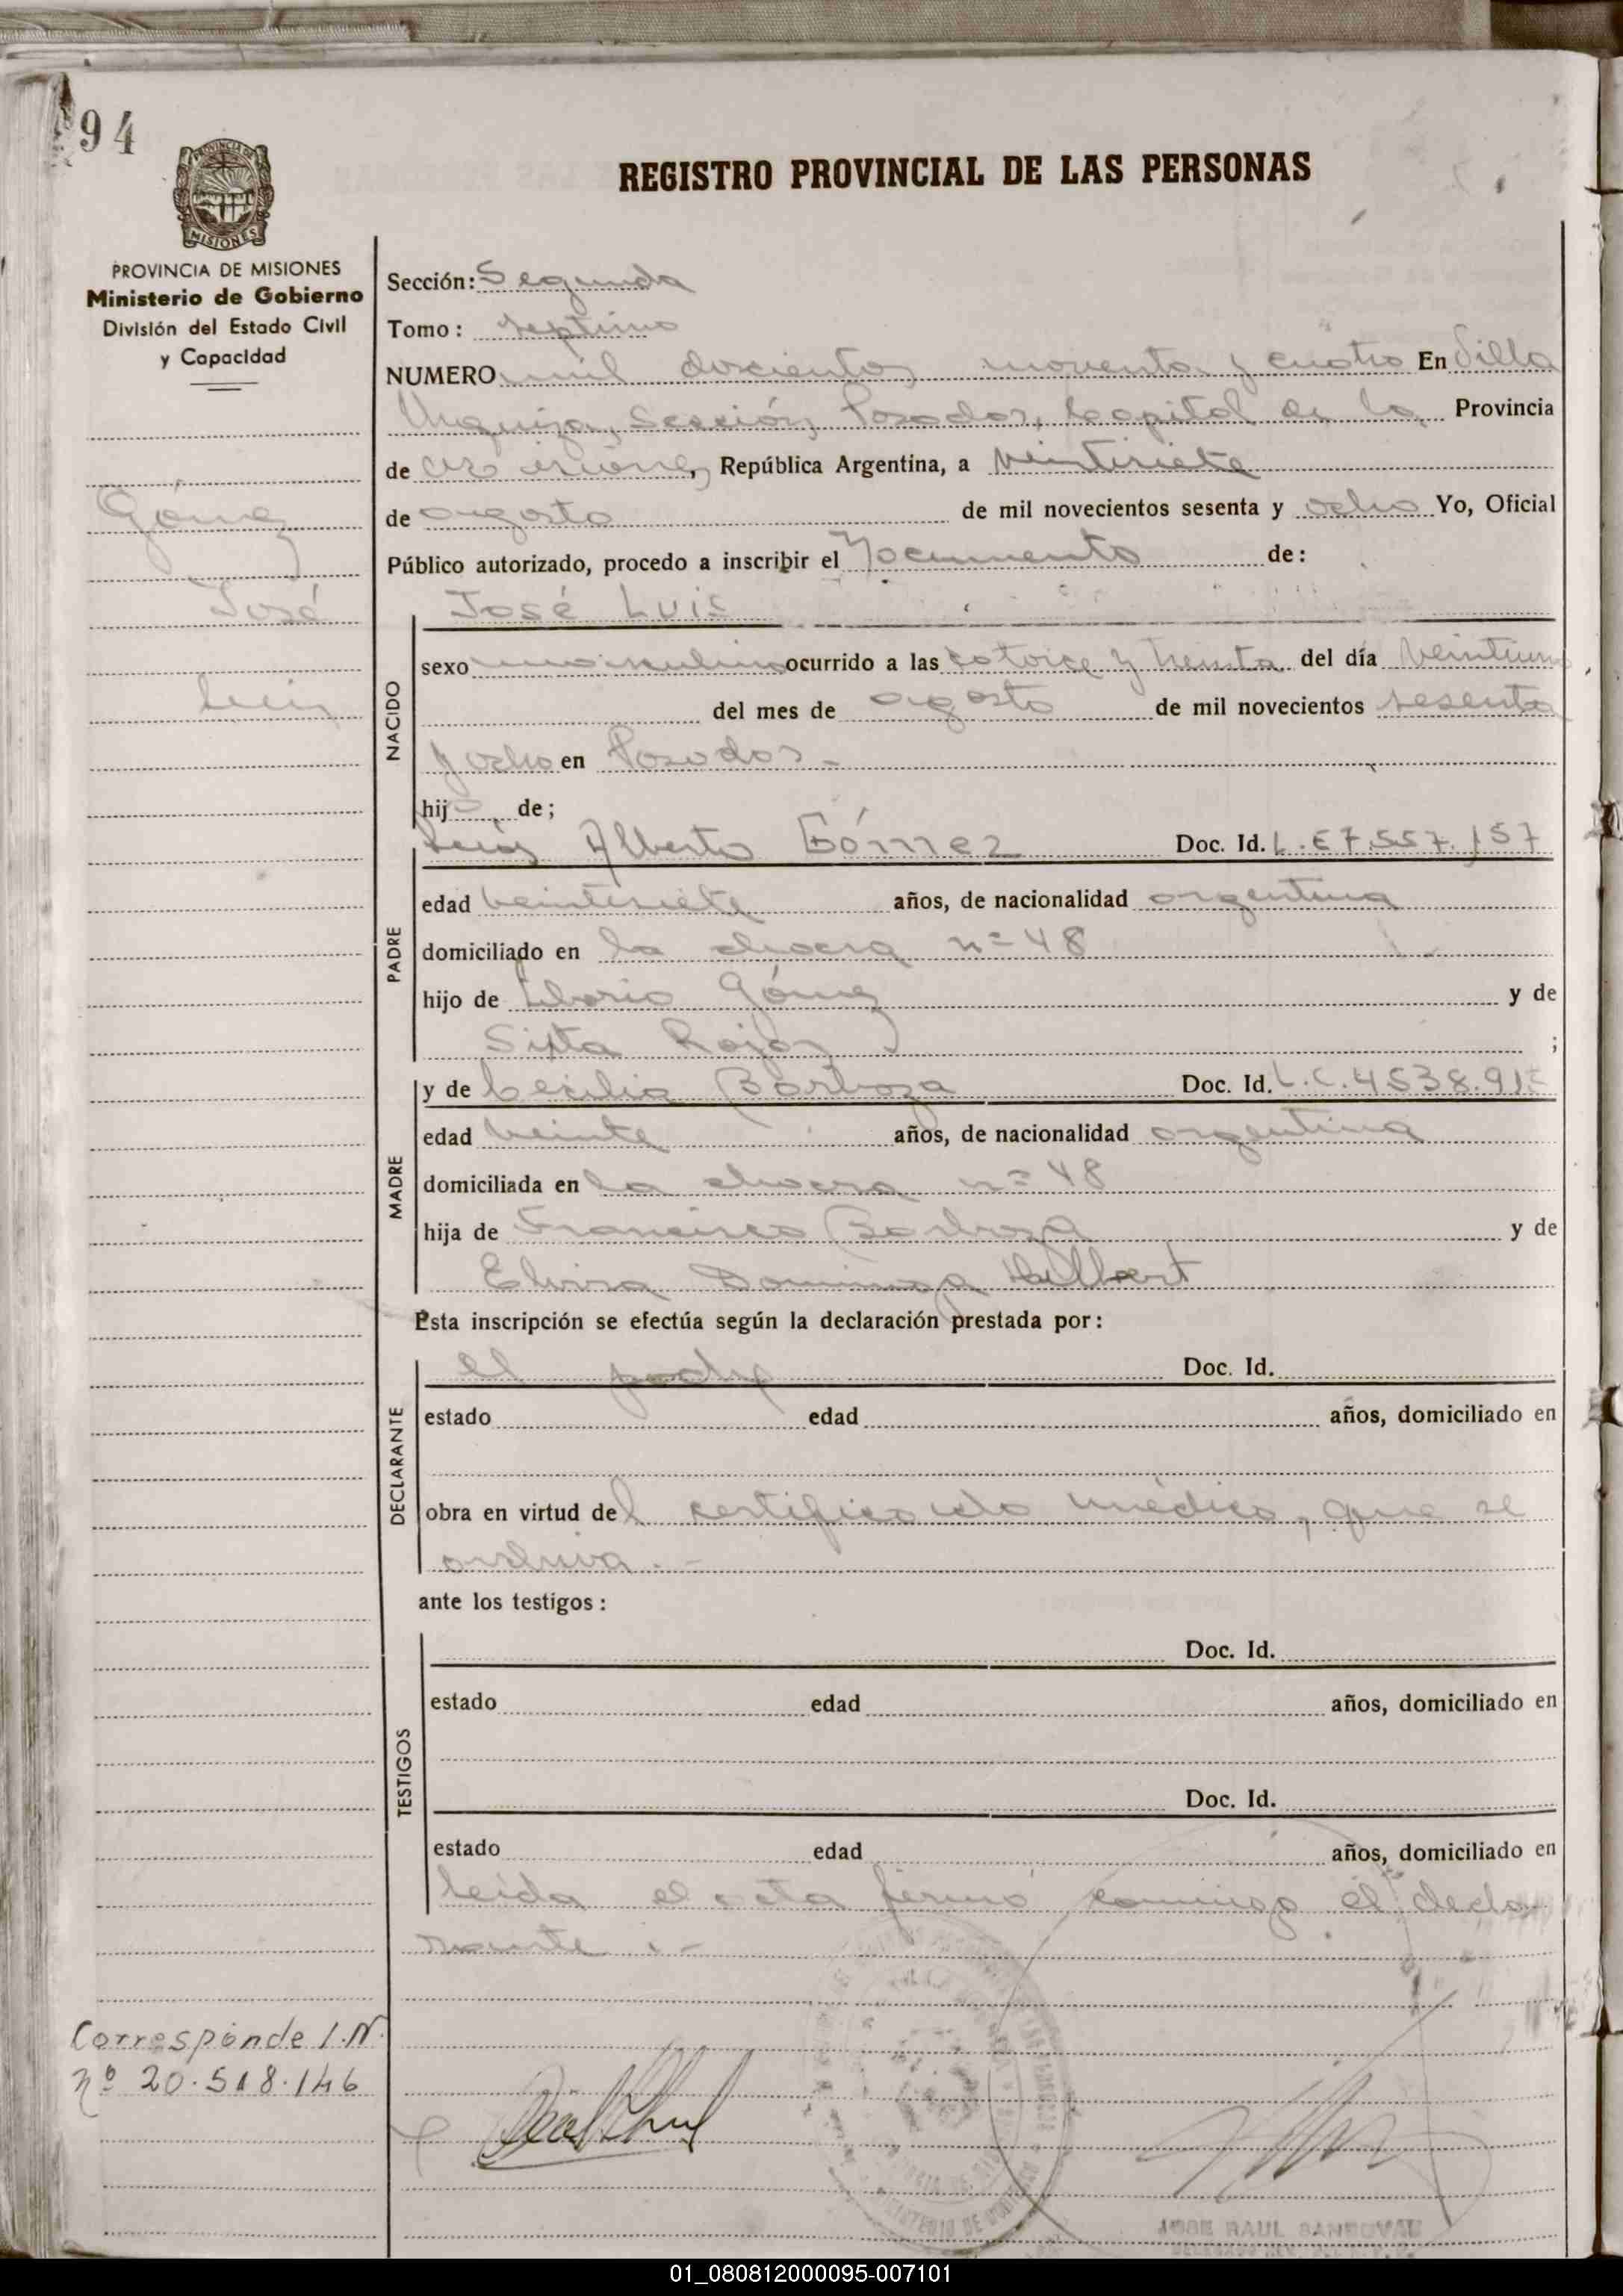 94
REGISTRO PROVINCIAL DE LAS PERSONAS
PROVINCIA DE MISIONES
MISIONES
PROVINCIA DE MISIONES
Ministerio de Gobierno
División del Estado Civil
y Capacidad
Gómez
José
Luis
Sección: Segunda
Tomo: septimo
NUMERO mil doscientos noventa y cuatro En Villa
Urquiza, Sección, Posadas, Capital de la Provincia
de Misiones, República Argentina, a veintisiete
de agosto de mil novecientos sesenta y ocho Yo, Oficial
Público autorizado, procedo a inscribir el Nacimiento de:
NACIDO
José Luis
sexo masculino ocurrido a las catorce y treinta del día veintiuno
del mes de agosto de mil novecientos sesenta
y ocho en Posadas.-
hijo de;
PADRE
Luis Alberto Gómez Doc. Id. 557.157
edad veintisiete años, de nacionalidad argentina
domiciliado en la chacra nº 48
hijo de Liborio Gómez y de
Sixta Rojas ;
MADRE
y de Cecilia Barboza Doc. Id. L.C.4.538.91
edad veinte años, de nacionalidad argentina
domiciliada en la chacra nº 48
hija de Francisco Barboza y de
Elvira Dominga Halbert
Esta inscripción se efectúa según la declaración prestada por:
DECLARANTE
el padre Doc. Id.
estado edad años, domiciliado en
obra en virtud del certificado médico, que se
archiva.-
ante los testigos:
TESTIGOS
Doc. Id.
estado edad años, domiciliado en
Doc. Id.
estado edad años, domiciliado en
leida el acta firmó conmigo el decla
rante.-
Corresponde I.N.
nº 20.518.146
JOSE RAUL SANDOVAL
01_080812000095-007101